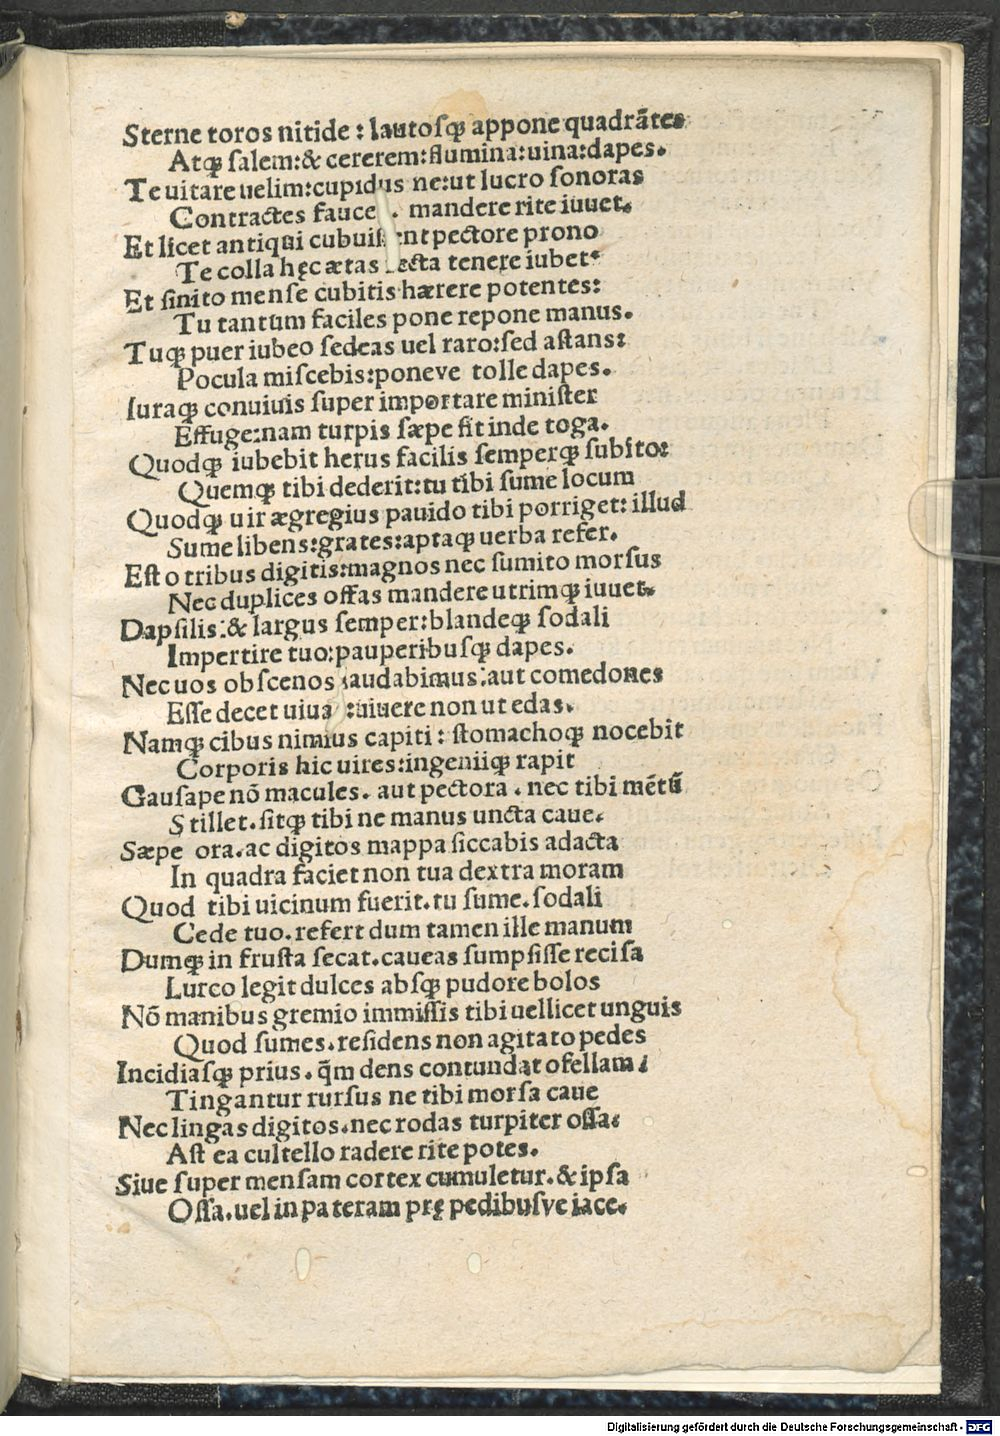 Sterne toros nitide : lautosqꝫ appone quadrãtes
Atqꝫ salem:& cererem:flumina:uina:dapes.
Te uitare uelim:cupidus ne:ut lucro sonoras
Contractes . mandere rite iuuet.
Et licet antiqui pectore prono
Te colla hęc ætas tenere iubet:
Et finito mense cubitis hærere potentes:
Tu tantum faciles pone repone manus.
Tuqꝫ puer iubeo sedeas uel raro:sed astans:
Pocula miscebis:poneve tolle dapes.
Iuraqꝫ conuiuis super importare minister
Effuge:nam turpis sæpe fit inde toga.
Quodqꝫ iubebit herus facilis semperqꝫ subito:
Quemqꝫ tibi dederit:tu tibi sume locum
Quodqꝫ uir ægregius pauido tibi porriget: illud
Sume libens:grates:aptaqꝫ uerba refer.
Est o tribus digitis:magnos nec sumito morsus
Nec duplices offas mandere utrimqꝫ iuuet.
Dapsilis:& largus semper:blandeqꝫ sodali
Impertire tuo:pauperibusqꝫ dapes.
Nec uos obscenos laudabimus:aut comedones
Esse decet :uiuere non ut edas.
Namqꝫ cibus nimius capiti : stomachoqꝫ nocebit
Corporis hic uires:ingeniiqꝫ rapit
Gausape nõ macules. aut pectora . nec tibi mẽtũ
Stillet.sitqꝫ tibi ne manus uncta caue.
Sæpe ora.ac digitos mappa siccabis adacta
In quadra faciet non tua dextra moram
Quod tibi uicinum fuerit.tu sume.sodali
Cede tuo.refert dum tamen ille manum
Dumqꝫ in frusta secat.caueas sumpsisse recisa
Lurco legit dulces absqꝫ pudore bolos
Nõ manibus gremio immissis tibi uellicet unguis
Quod sumes.residens non agitato pedes
Incidiasqꝫ prius . q̃m dens contundat ofellam:
Tingantur rursus ne tibi morsa caue
Nec lingas digitos.nec rodas turpiter ossa:
Ast ea cultello radere rite potes.
Siue super mensam cortex cumuletur.& ipsa
Ossa.uel in pateram prę pedibusve iace.
Digitalisierung gefördert durch die Deutsche Forschungsgemeinschaft - DFG